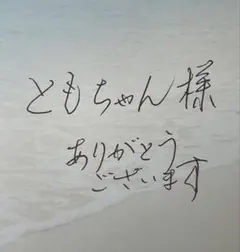 ともちゃん様
ありがとう
ございます